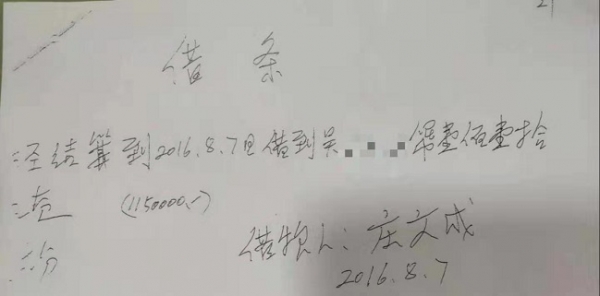 借条
经结算到2016.8.7日借到吴 幣壹佰壹拾
(1150000.-)
借款人：庄文成
2016.8.7